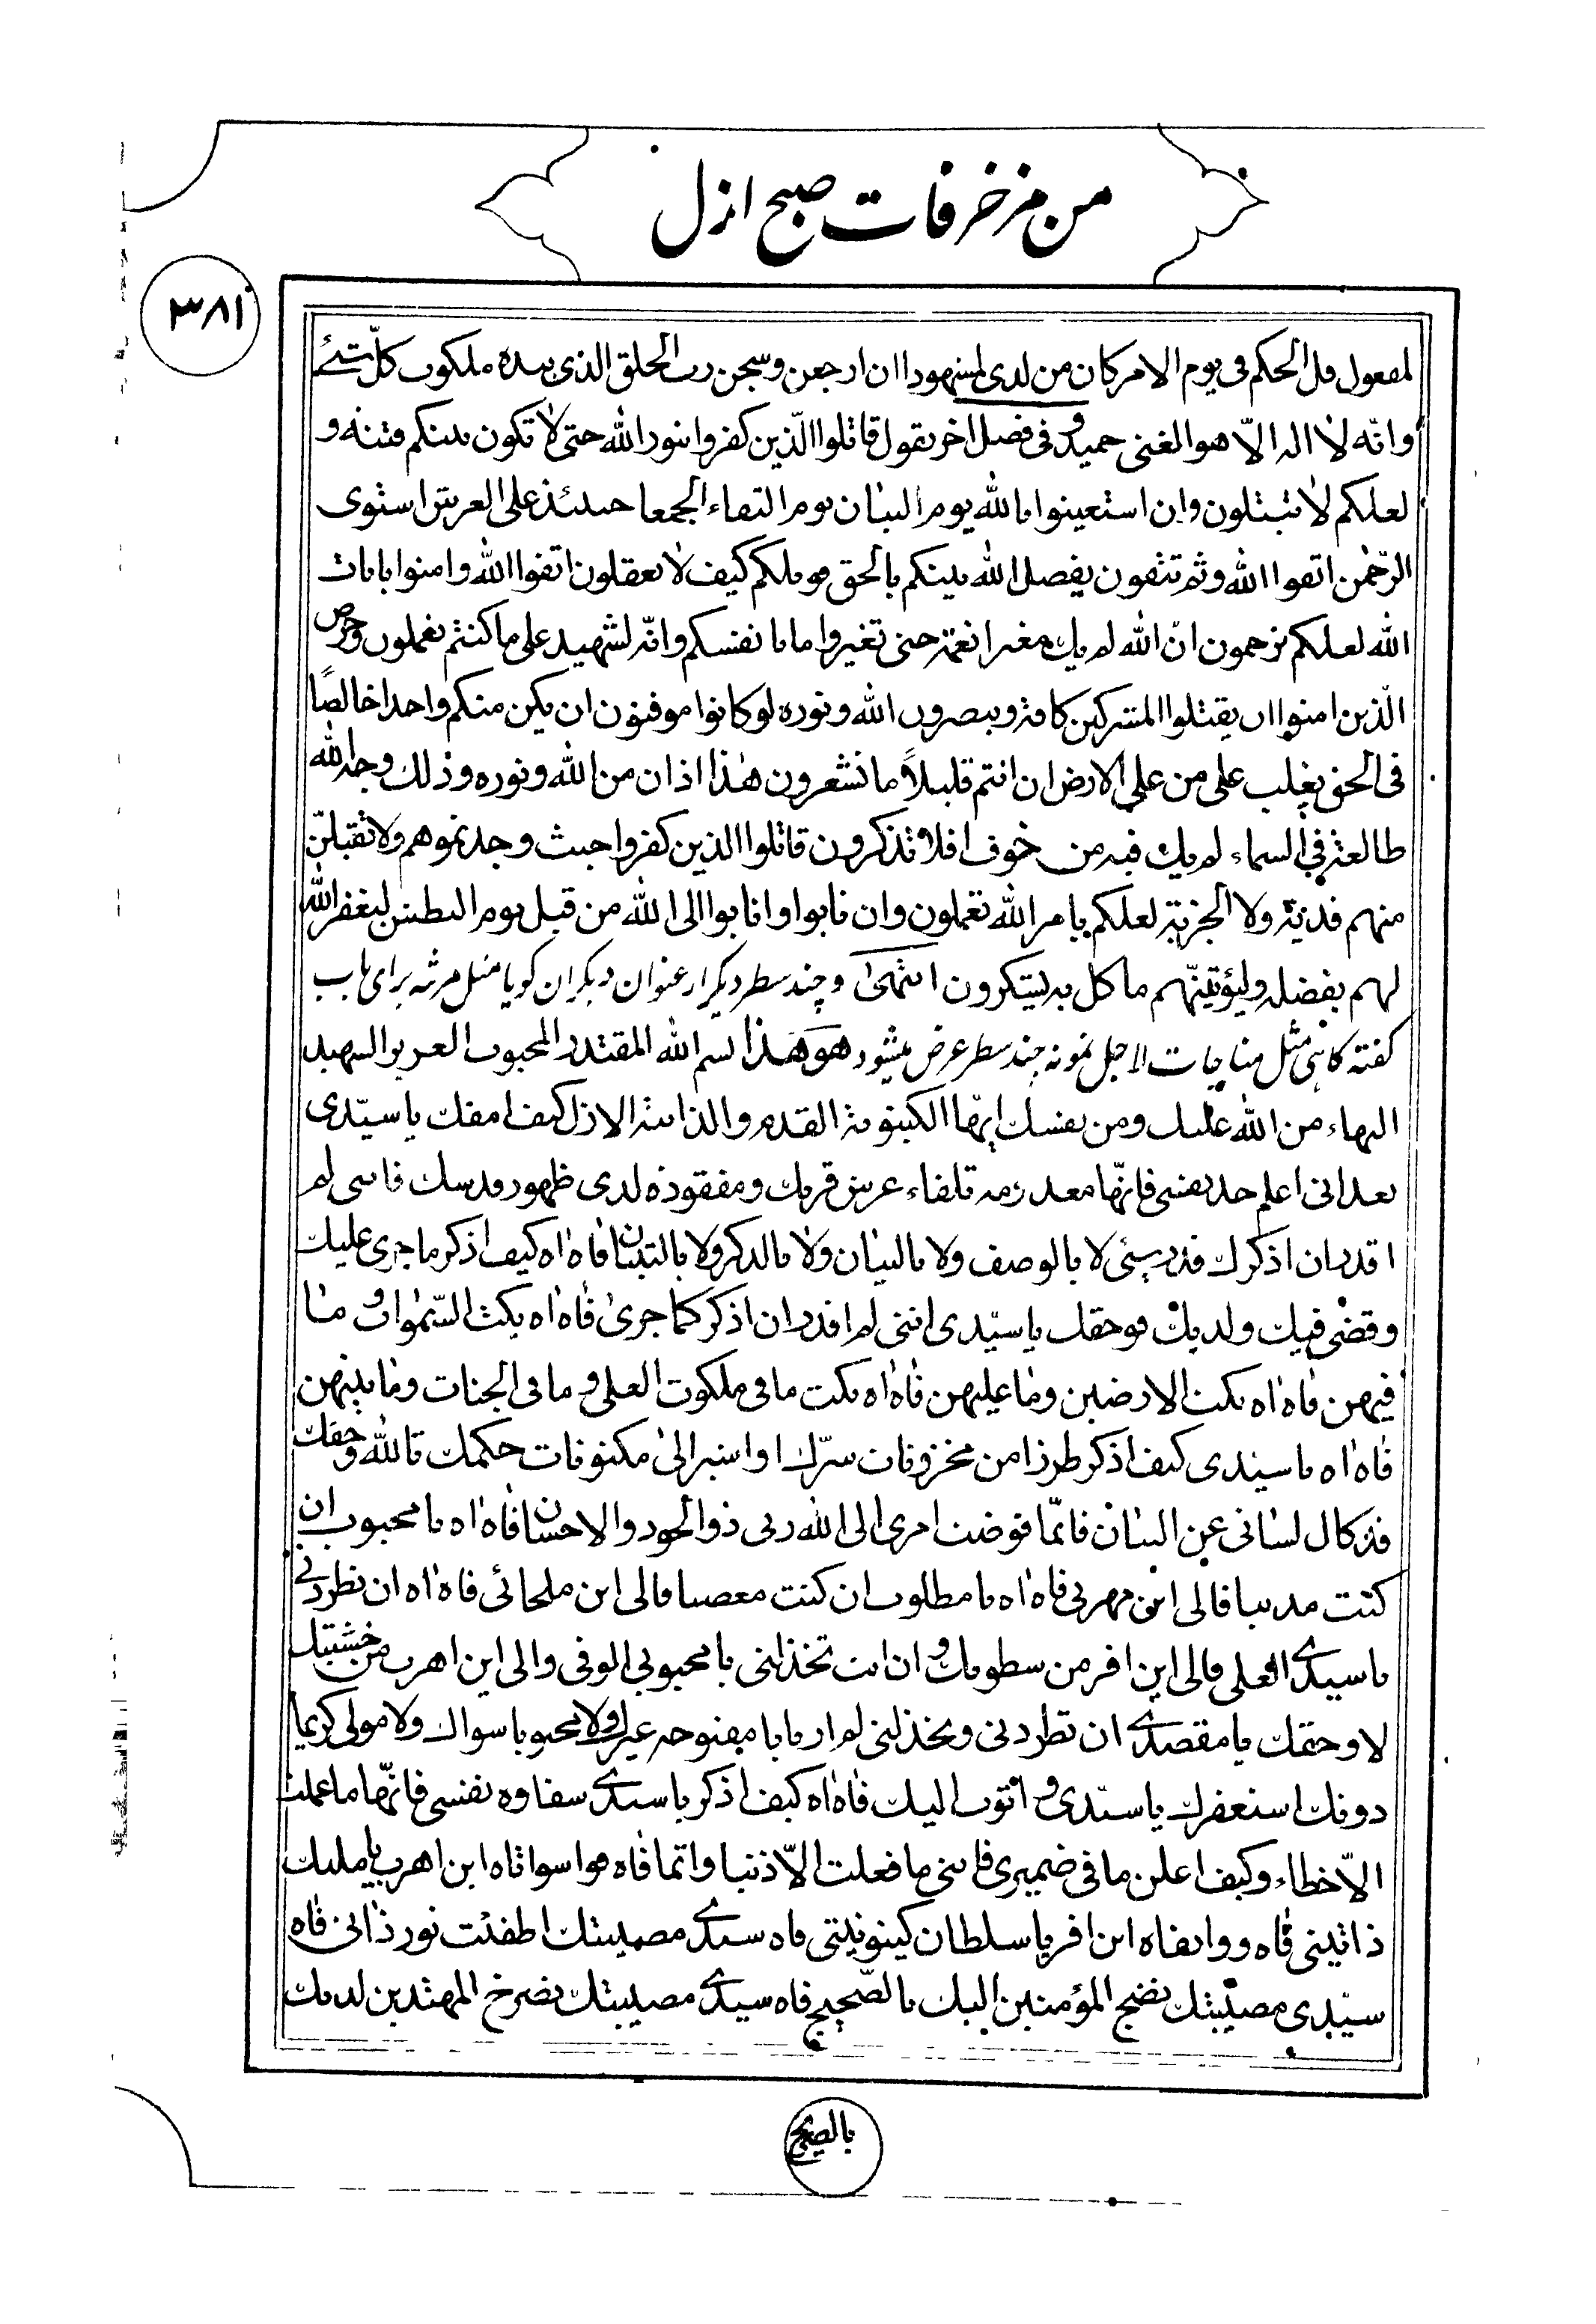 من مزخرفات صبح ازل
۳۸۱
لمفعول قل الحكم فى يوم الامر كان من لدى لمشهودا ان ارجعن وسجن رب الخلق الذى بيده ملكوت كلّ شئ
وانّه لا اله الّا هو الغنى حميد و فى فصل اخر يقول قاتلوا الّذين كفروا بنور الله حتى لا تكون بينكم فتنه و
لعلكم لا تبتلون وان استعينوا بالله يوم البيان يوم التقاء الجمعا حينئذ على العرش استوى
الرّحمن اتقوا الله و ثم تتقون يفصل الله بينكم بالحق فويلكم كيف لا تعقلون اتقوا الله وامنوا بايات
الله لعلكم ترحمون انّ الله لم يك مغيرا نعمة حتى تغيروا ما بانفسكم وانّه لشهيد على ما كنتم تعملون وحرض
الّذين امنوا ان يقتلوا المشركين كافة وينصرون الله ونوره لو كانوا موقنون ان يكن منكم واحدا خالصًا
فى الحق يغلب على من على الارض ان انتم قليلًا ما تشعرون هذا اذان من الله ونوره وذلك وجه الله
طالعة فى السماء لم يك فيه من خوف افلا تذكرون قاتلوا الذين كفروا حيث وجدتموهم ولا تقبلنّ
منهم فدية ولا الجزية لعلكم بامر الله تعملون وان تابوا وانابوا الى الله من قبل يوم البطش ليغفر الله
لهم بفضله وليؤتينّهم ما كل به يستكرون انتهى و چند سطر ديگر از عنوان ديگر ان گويا مثل مرثيه براى باب
گفته كاهى مثل مناجات لاجل نمونه چند سطر عرض ميشود هو هذا بسم الله المقتدر المحبوب العزيز الشهيد
البهاء من الله عليك ومن نفسك ايّها الكينونة القدم والذاتية الازل كيف امقك يا سيّدى
بعد انى اعلم حد نفسى فانّها معدومة تلقاء عرش قربك ومفقوده لدى ظهور قدسك فانى لم
اقدر ان اذكرك قدر شئ لا بالوصف ولا بالبيان ولا بالذكر ولا بالتبيان فاه اه كيف اذكر ما جرى عليك
وقضى فيك ولديك فوحقك يا سيّدى اننى لم اقدر ان اذكر كما جرى فاه اه بكت السّموات و ما
فيهن فاه اه بكت الارضين وما عليهن فاه اه بكت ما فى ملكوت العلى و ما فى الجنات وما بينهن
فاه اه يا سيدى كيف اذكر طرزا من مخزونات سرّك او اشير الى مكنونات حكمك تالله وحقك
قد كال لسانى عن البيان فانّما فوضت امرى الى الله ربى ذو الجود والاحسان فاه اه يا محبوب ان
كنت مذنبا فالى اين مهربى فاه اه يا مطلوب ان كنت معصيا فالى اين ملجائى فاه اه ان تطردنى
يا سيدى العلى فالى اين افر من سطوتك و ان انت تخذلنى يا محبوبى الوفى والى اين اهرب من خشيتك
لا وحقك يا مقصدى ان تطردنى وتخذلنى لم ار بابا مفتوحه غيرك ولا محبوبا سواك ولا مولى كريما
دونك استغفرك يا سيّدى و اتوب اليك فاه اه كيف اذكر يا سيدى سقاوه نفسى فانّها ما عملت
الّا خطاء وكيف اعلن ما فى ضميرى فاننى ما فعلت الّا ذنبا واثما فاه فواسواتاه اين اهرب يا مليك
ذاتيتى فاه و وا اين افر يا سلطان كينونيتى فاه سيدى مصيبتك اطفئت نور ذاتى فاه
سيّدى مصيبتك تضج المؤمنين اليك بالضّجيج فاه سيدى مصيبتك تصرخ المهتدين لديك
بالصريخ